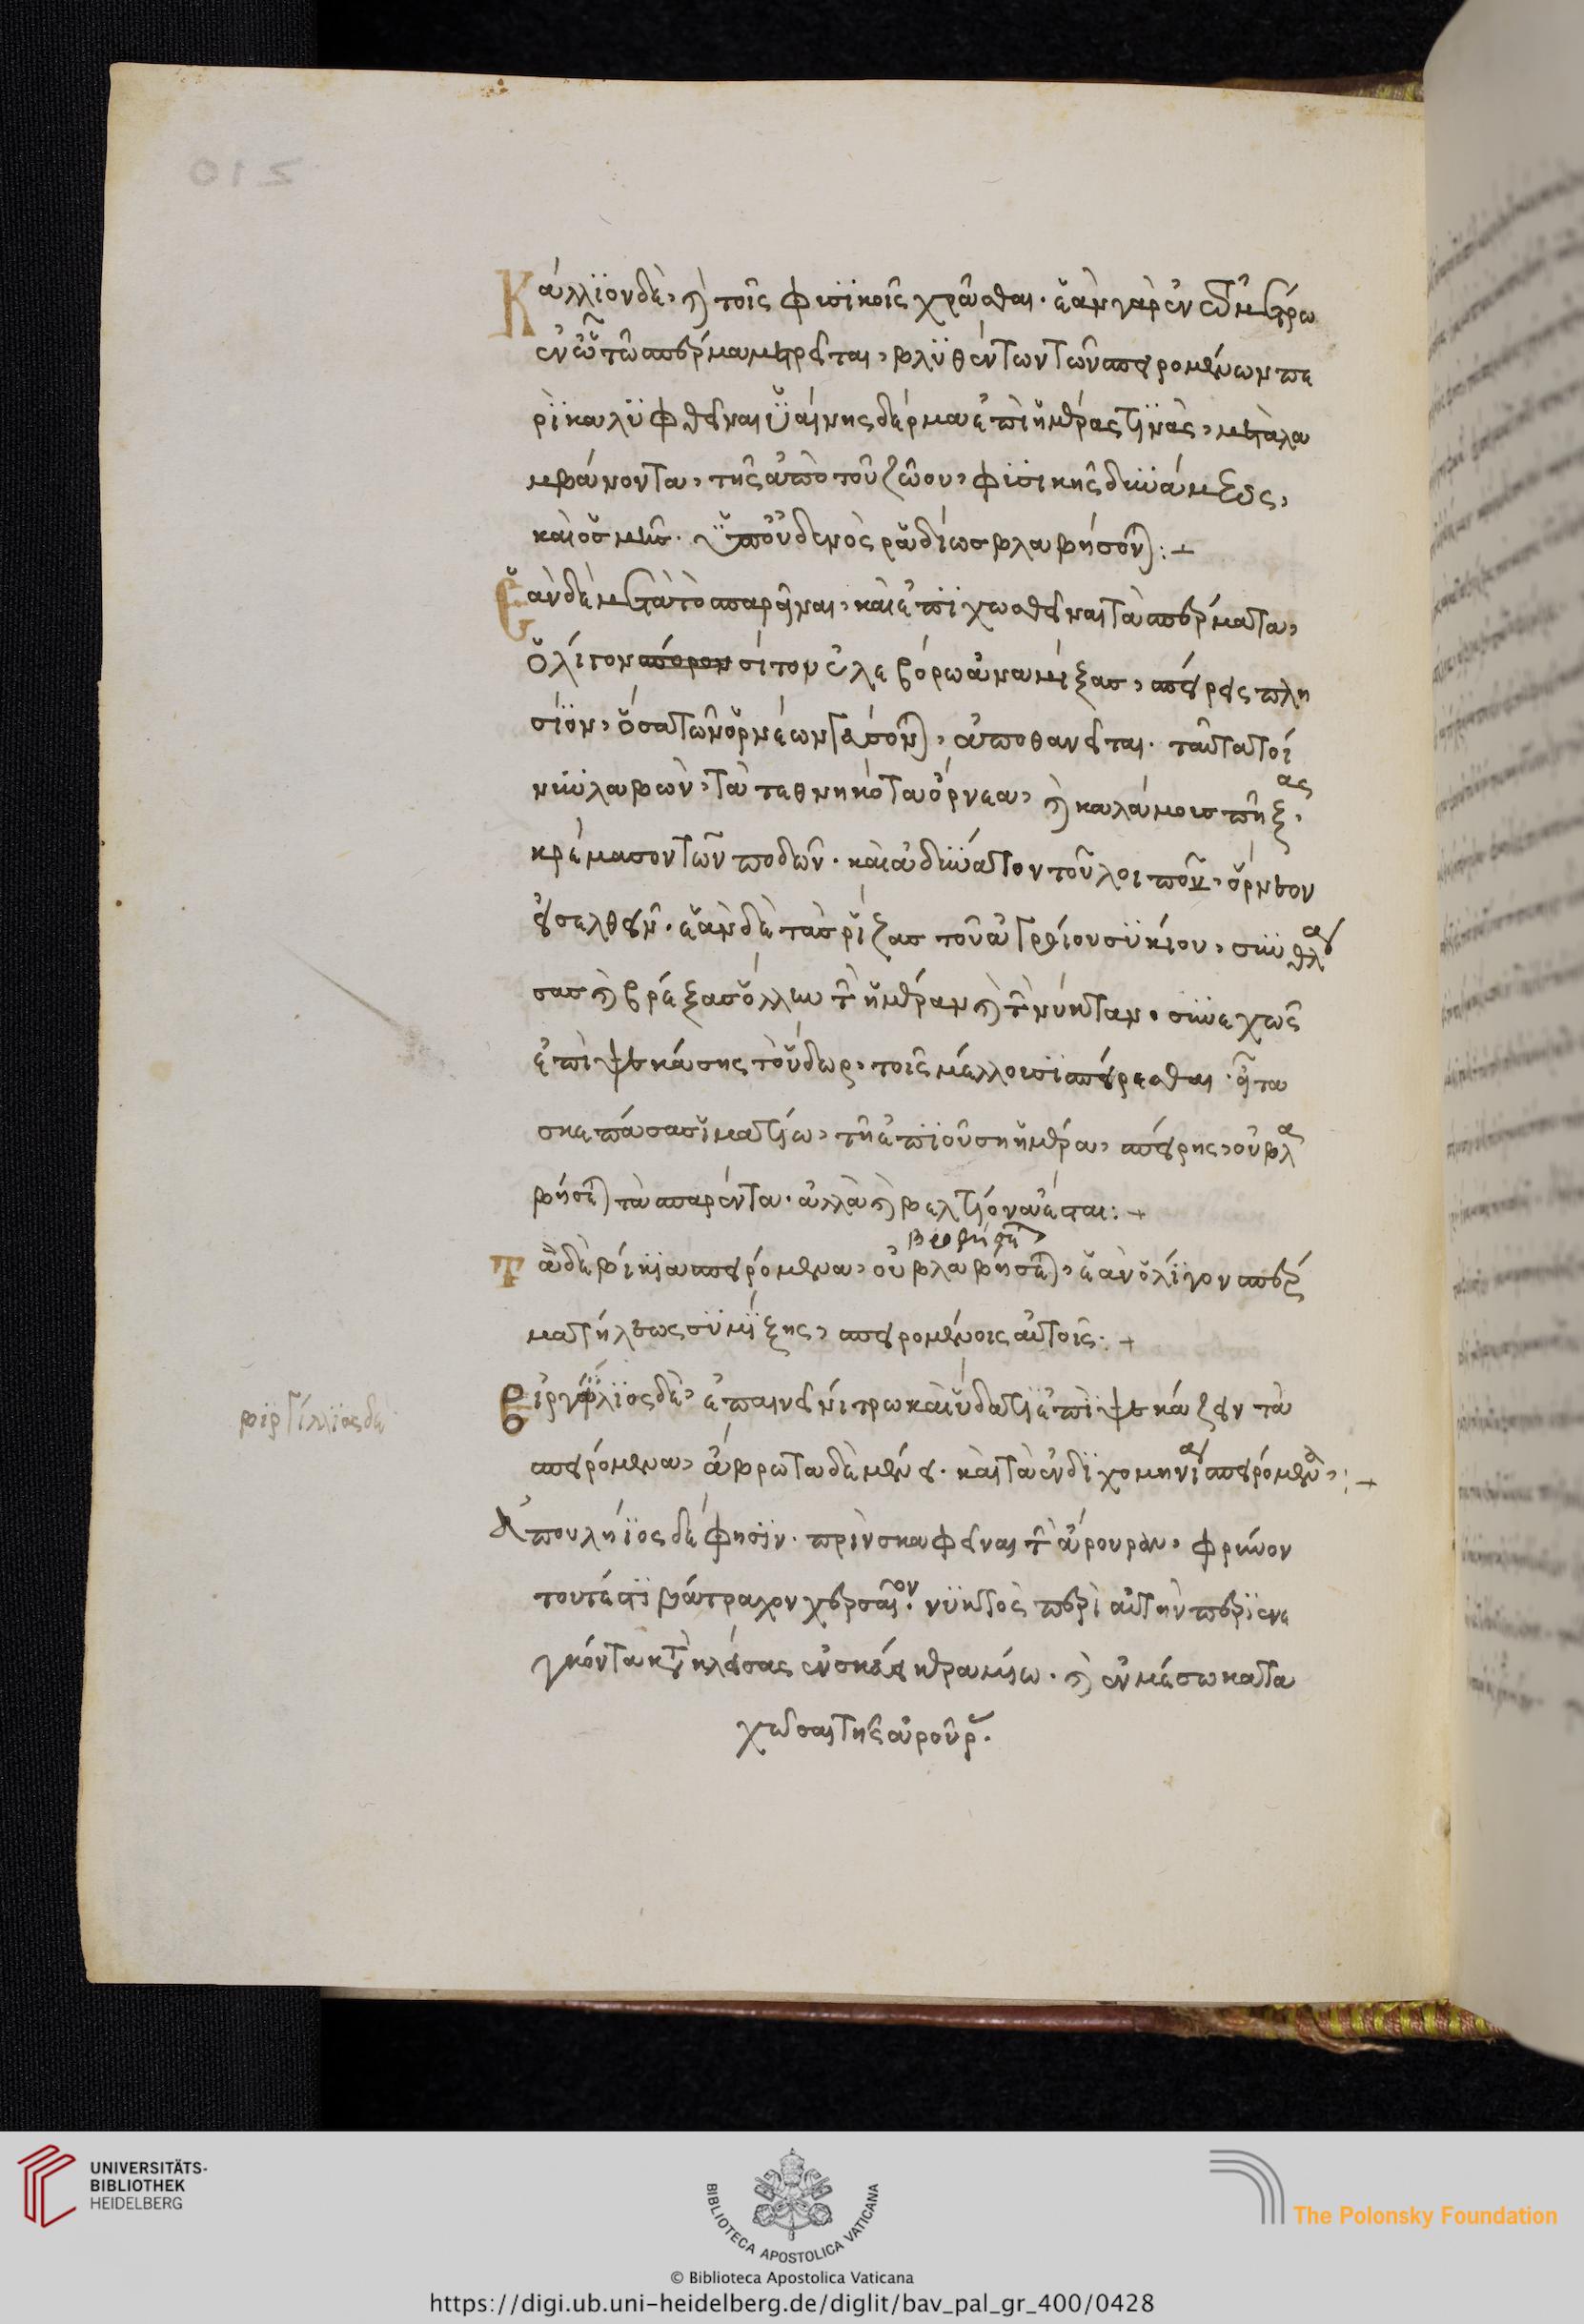 210
Κάλλϊον δὲ, καὶ τοῖς φυσϊκοῖς χρᾶσθαι· ἐὰν γὰρ ἐν τῶ μέτρω
ἐν ὧ τὸ σπέρμα μετρεῖται, βλϋθέντων τῶν σπειρομένων πε
ρϊκαλϋφθεῖναι ὑαίνης δέρμα ἐπὶ ἡμέρας τϊνὰς, μεταλα
μβάνοντα, τῆς ἀπὸ τοῦ ζώου, φϋσικῆς δυνάμεως,
καὶ ὀσμῆς· ὑπ οὐδενὸς ῥαδίως βλαβήσονται:+
Ἐὰν δὲ μετὰ τὸ σπαρῆναι, καὶ ἐπϊχωσθεῖναι τὰ σπέρματα,
ὀλίγον σπόρον σίτον ἐλεβόρω ἀναμίξας, σπείρεις πλη
σίον, ὅσα τῶν ὀρνέων γεύσονται, ἀποθανεῖται· ταῦτα τοί
νυν λαβὼν, τὰ τεθνηκότα ὄρνεα, καὶ καλάμοις πήξας,
κρέμασον τῶν ποδῶν· καὶ ἀδυνάτον τοῦ λοιποῦ, ὄρνεον
εἰσελθεῖν· ἐὰν δὲ τὰς ῥίζας τοῦ ἀγρείου συκίου, συνθλα
σας καὶ βρέξας ὅλην τὴν ἡμέραν καὶ τὴν νύκταν· συνεχῶς
ἐπιψεκάσης τὸ ὕδωρ, τοῖς μέλλουσϊ σπείρεσθαι· εἶτα
σκεπάσας ἱματίω, τῆ ἐπϊούση ἡμέρα, σπείρης, οὐ βλα
βήσεται τὰ σπαρέντα· ἀλλὰ καὶ βελτίονα ἔσται:+
Τὰ δὲ βίκϊα σπειρόμενα, οὐ βλαβήσεται, ἐὰν ὀλίγον σπέρ
μα τήλεως συμίξης, σπειρομένοις αὐτοῖς:+
βϊργίλλϊος δὲ
Βιργίλϊος δὲ, ἐπαινεῖ νίτρω καὶ ὕδατϊ ἐπϊψεκάζειν τὰ
σπειρόμενα, ἄβρωτα δὲ μένει· καὶ τὰ ἐνδϊχομηνίαι σπειρόμενα:+
Ἀπουλήϊος δέ φησϊν· πρὶν σκαφεῖναι τὴν ἄρουραν, φρύνον
τουτέστϊ βάτραχον χερσαῖον· νϋκτὸς περὶ αὐτὴν περϊενε
γκόντα κατακλεῖσας ἐν σκεύει κεραμίω· καὶ ἐν μέσω κατα
χῶσαι τῆς ἀρούρας·
UNIVERSITÄTS-
BIBLIOTHEK
HEIDELBERG
BIBLIOTECA APOSTOLICA VATICANA
The Polonsky Foundation
© Biblioteca Apostolica Vaticana
https://digi.ub.uni-heidelberg.de/diglit/bav_pal_gr_400/0428